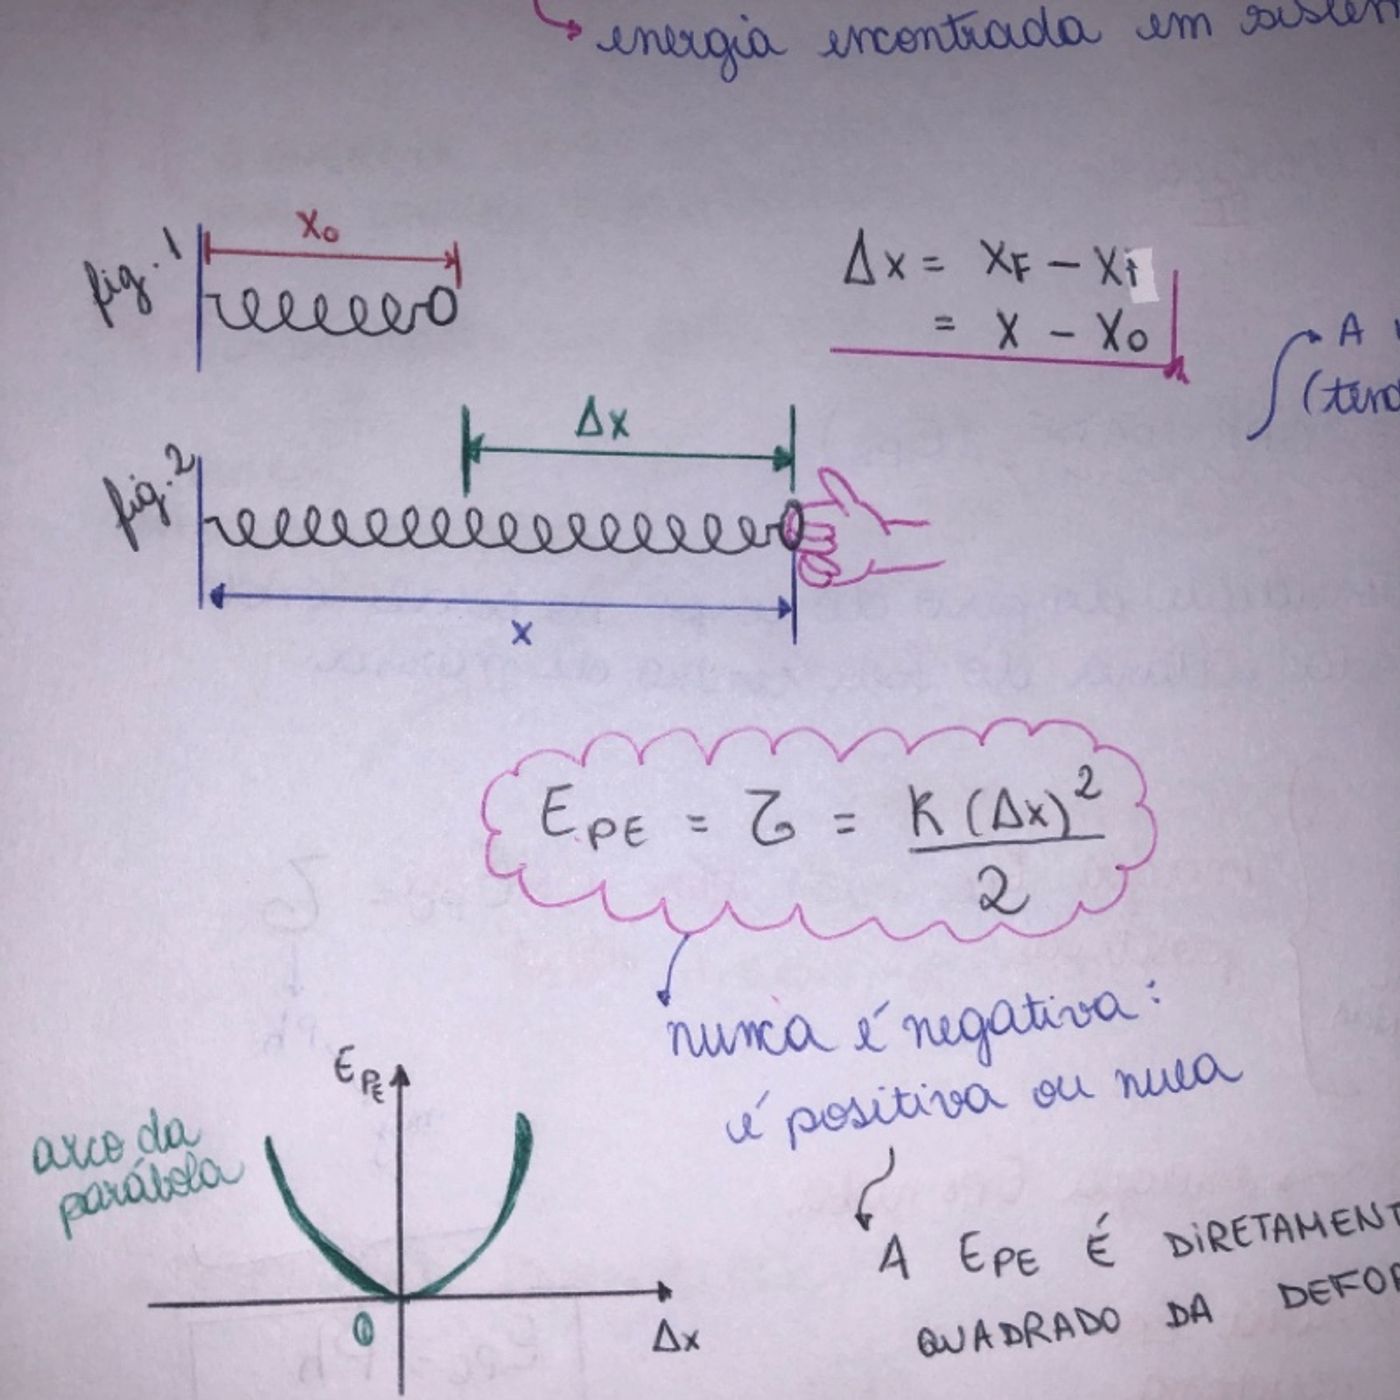 energia encontrada em
fig. 1
X₀
Δx = XF - Xi
= X - X₀
A
fig. 2
Δx
x
EPE = τ = K (Δx)² / 2
nunca é negativa:
é positiva ou nula
EPE
arco da
parábola
0
Δx
A EPE É
QUADRADO DA